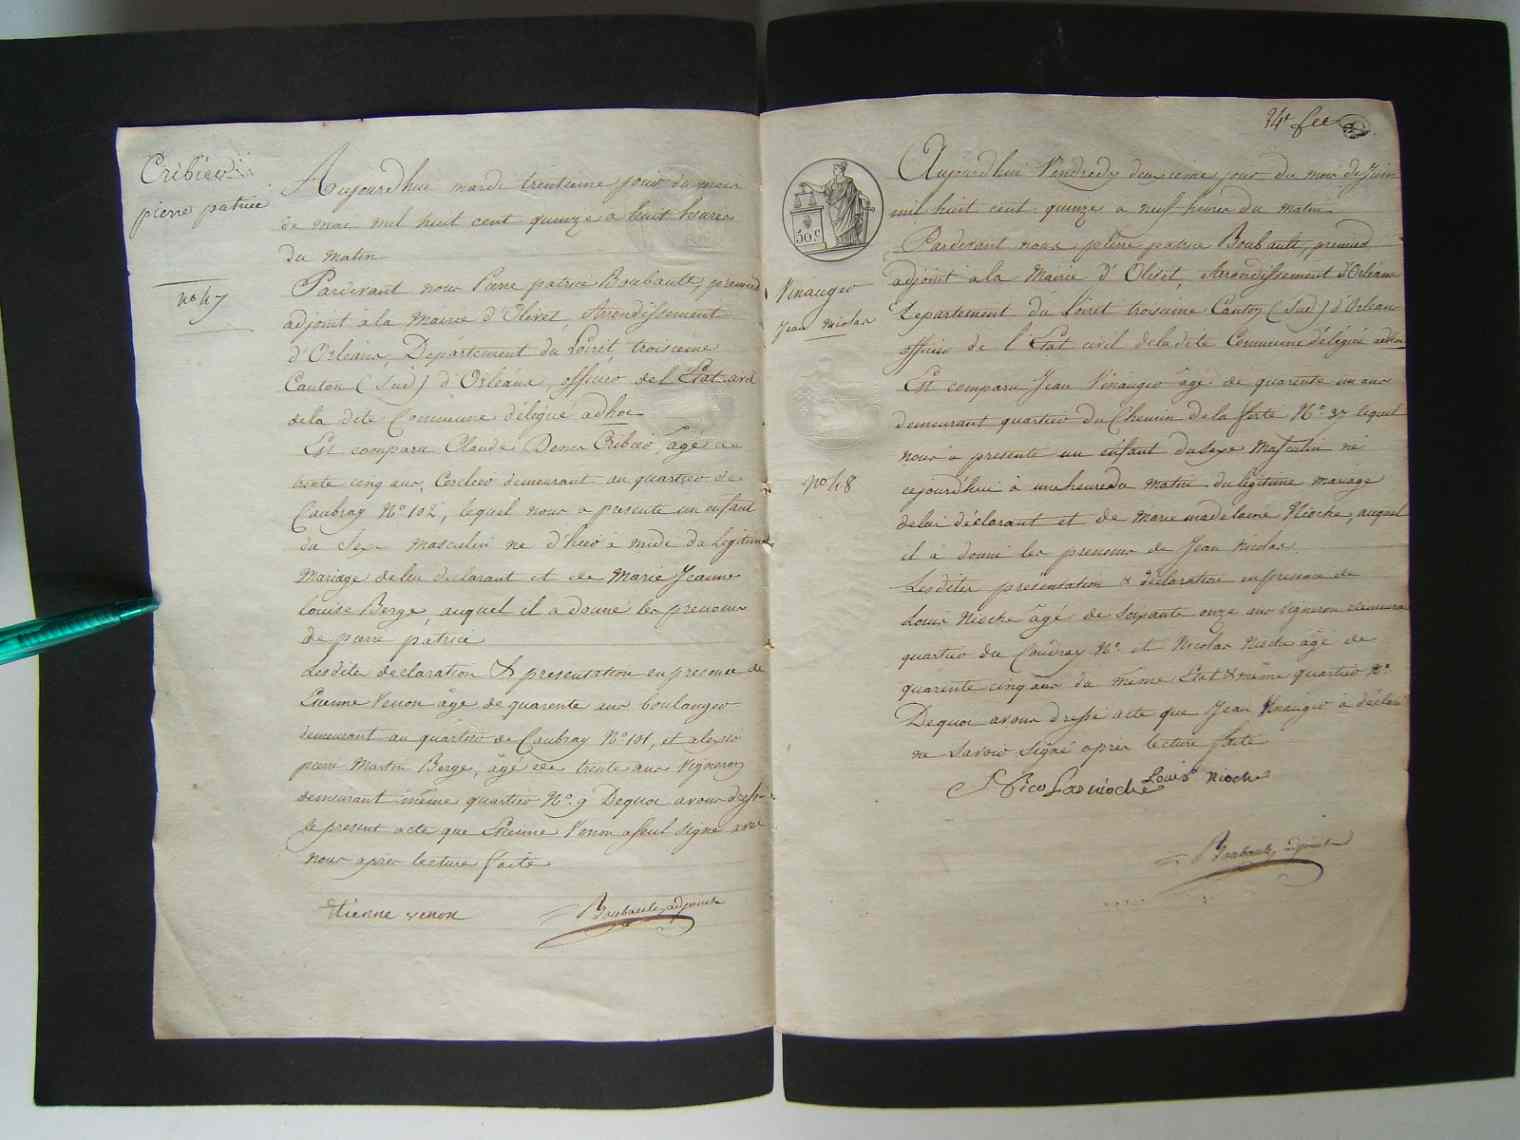 Cribier
pierre patrice
no 47
Aujourdhui mardi trentieme jour du mois
de mai mil huit cent quinze a huit heures
du matin
Pardevant nous Pierre patrice Boubault, premier
adjoint à la Mairie d'Olivet, Arrondissement
d'Orléans, Département du Loiret, troisieme
Canton (Sud) d'Orléans, officier de l'Etat civil
dela dite Commune délégué adhoc
Est comparu Claude Cribier, âgé de
trente cinq ans, demeurant au quartier de
Caubray No 102, lequel nous a presenté un enfant
du Sexe masculin né d'hier à midi du légitime
Mariage delui déclarant et de Marie Jeanne
Louise Berge, auquel il a donné les prenoms
de pierre patrice
Lesdite declaration & presentation en presence de
Etienne Venon âgé de quarente ans boulanger
demeurant au quartier de Caubray No 101, et
pierre Martin Berge, âgé de trente ans Vigneron
demeurant même quartier No 9 Dequoi avons dressé
le present acte que Etienne Venon a seul signé avec
nous après lecture faite
etienne venon Boubault, adjoint
24e
50 c
Vinauger
Jean Nicolas
no 48
Aujourdhui Vendredy deuxieme jour du mois de Juin
mil huit cent quinze a neuf heures du matin
Pardevant nous pierre patrice Boubault, premier
adjoint a la Mairie d'Olivet, Arrondissement d'Orléans
Département du Loiret troisieme Canton (Sud) d'Orléans
officier de l'Etat civil dela dite Commune délégué adhoc
Est comparu Jean Vinauger âgé de quarente un ans
demeurant quartier du Chemin dela ferté No 37 lequel
nous a presenté un enfant du sexe Masculin né
cejourd'hui à une heure du matin du légitime mariage
delui déclarant et de Marie madelaine Nioche, auquel
il a donné les prenoms de Jean Nicolas
Lesdites presentation & declaration en presence de
Louis Nioche âgé de Soixante onze ans vigneron demeurant
quartier du Coudray No et Nicolas Nioche âgé de
quarente cinq ans du même Etat & même quartier No
Dequoi avons dressé acte que Jean Vinauger à déclaré
ne savoir signé après lecture faite
Nicolas nioche Louis nioche
Boubault, adjoint